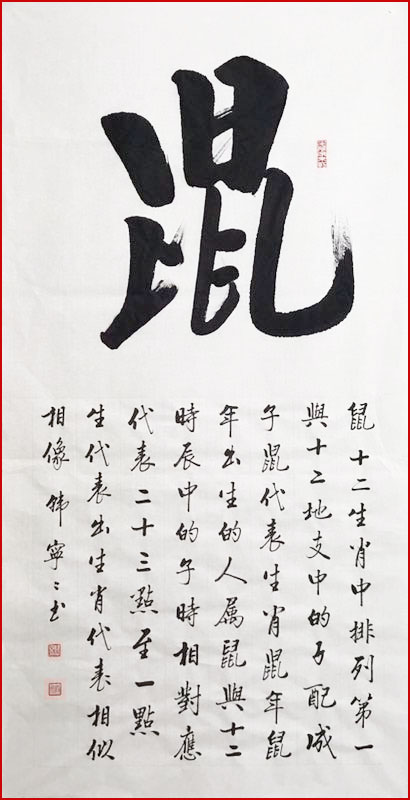 鼠
鼠十二生肖中排列第一
與十二地支中的子配成
子鼠代表生肖鼠年鼠
年出生的人属鼠與十二
時辰中的子時相對應
代表二十三點至一點
生代表出生肖代表相似
相像 韩寧〻书